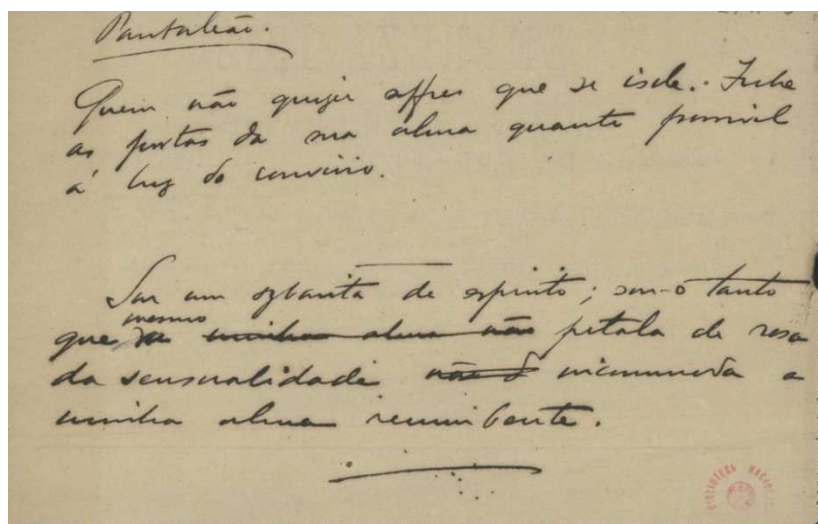 Pantaleão.
Quem não quizer soffrer que se isole. Feche
as portas da sua alma quanto possivel
á luz do convivio.
Sou um sybarita de espirito; sou-o tanto
mesmo
que a minha alma não petala de rosa
da sensualidade não é incommoda a
minha alma recumbente.
BIBLIOTECA NACIONAL